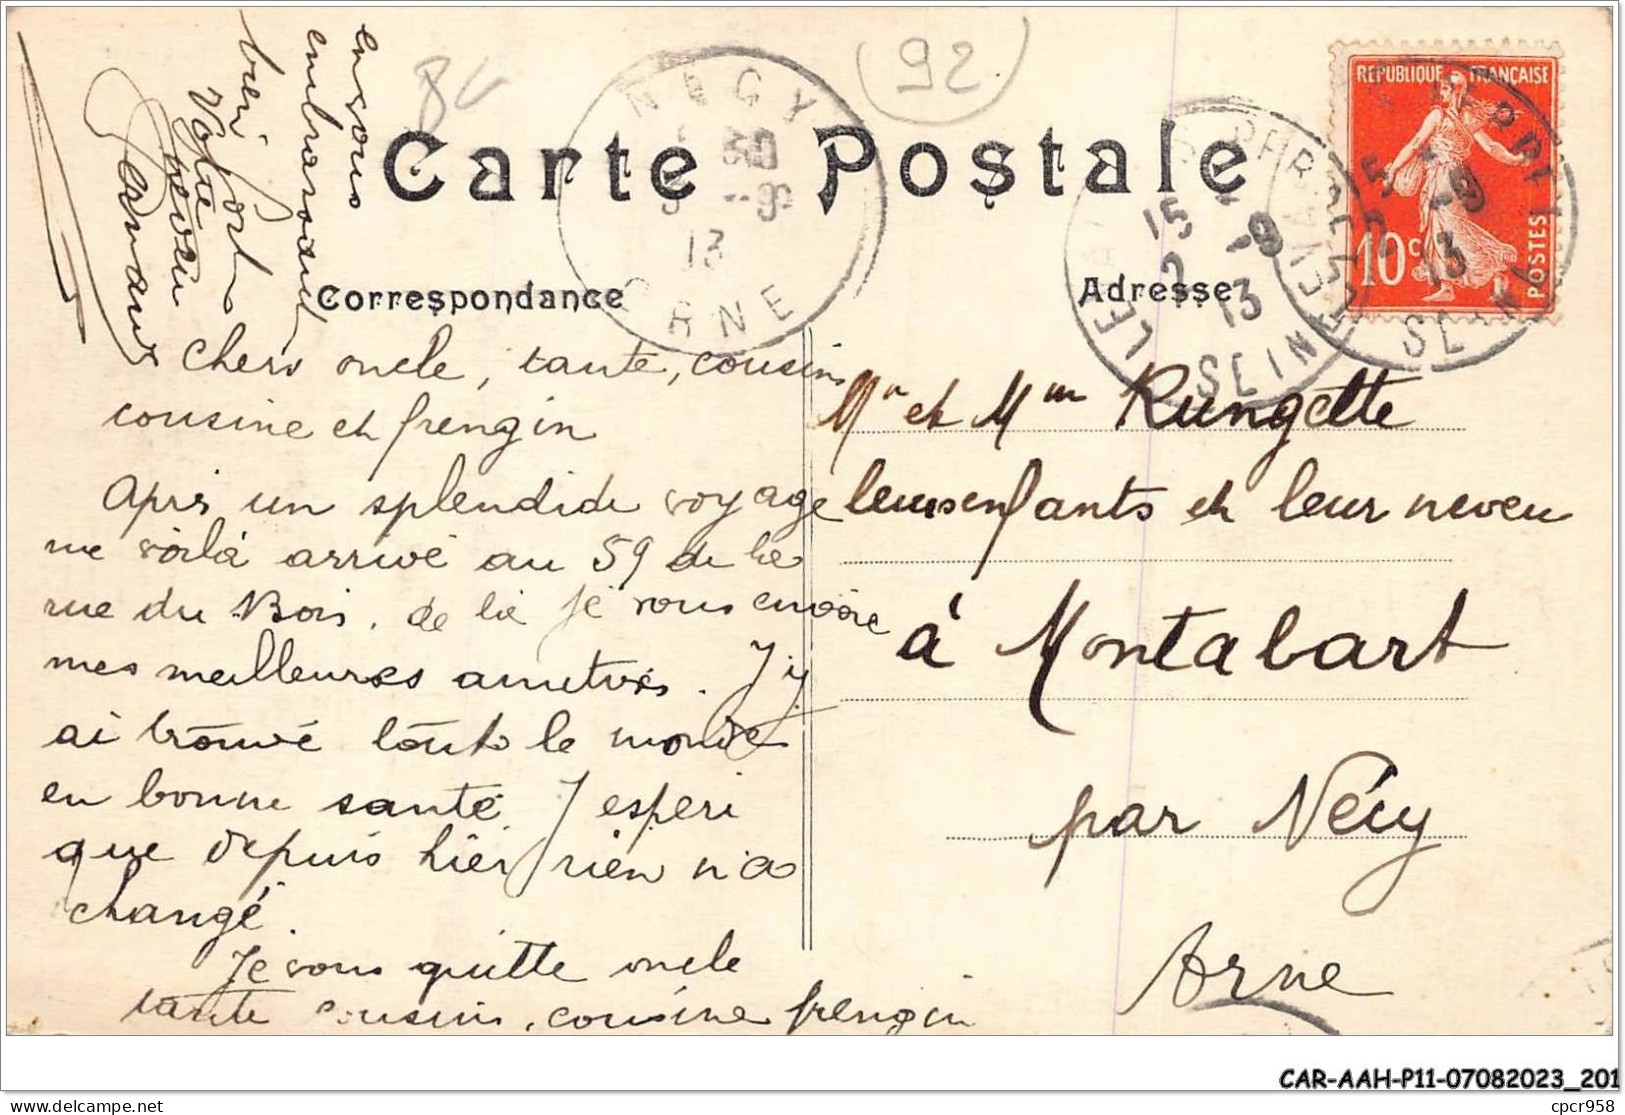 Carte Postale
Correspondance
Adresse
92
RÉPUBLIQUE FRANÇAISE
10c
POSTES
NECY
30
-9
13
ORNE
15
-9
13
SEINE
-9
13
SEINE
Chers oncle, tante, cousins
cousine et frengin
Après un splendide voyage
me voilà arrivé au 59 de la
rue du Bois. de là je vous envoie
mes meilleures amitiés. J'y
ai trouvé tout le monde
en bonne santé. J'espère
que depuis hier rien n'a
changé.
Je vous quitte oncle
tante cousins, cousine frengin
en vous
embrassant
bien fort
Votre
neveu
Mr et Mme Rungette
leurs enfants et leur neveu
à Montabart
par Nécy
Orne
CAR-AAH-P11-07082023_201
delcampe.net
cpcr958